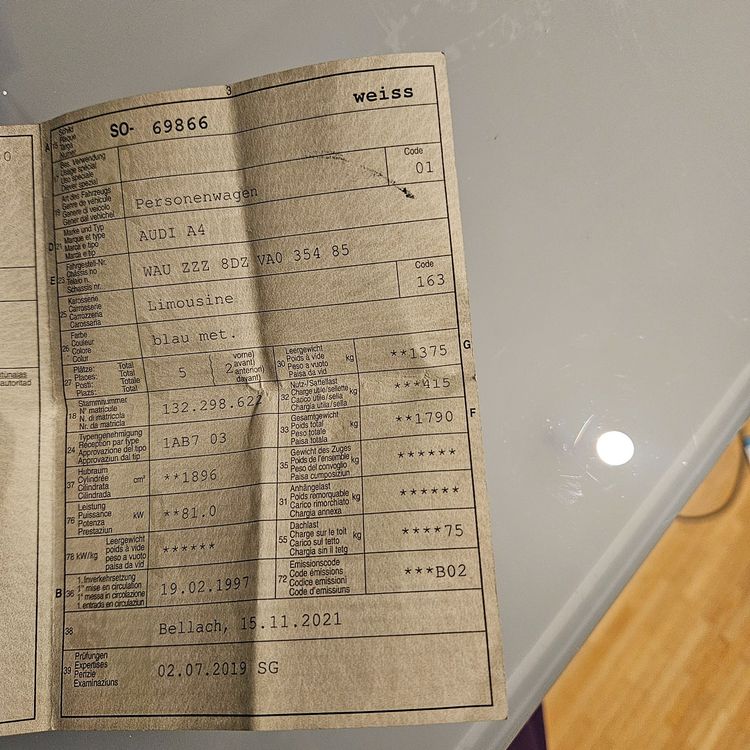 3
A 15 Schild
Plaque
Targa
Numer
SO- 69866
weiss
17 Bes. Verwendung
Usage spécial
Uso speciale
Diever spezial
Code
01
19 Art des Fahrzeugs
Genre de véhicule
Genere di veicolo
Gener dal vehichel
Personenwagen
D 21 Marke und Typ
Marque et type
Marca e tipo
Marca e tip
AUDI A4
E 23 Fahrgestell-Nr.
Châssis no
Telaio n.
Schassis nr.
WAU ZZZ 8DZ VA0 354 85
25 Karosserie
Carrosserie
Carrozzeria
Carosseria
Limousine
Code
163
26 Farbe
Couleur
Colore
Colur
blau met.
27 Plätze: Total
Places: Total
Posti: Totale
Plazs: Total
5
2
vorne)
avant)
anteriori)
davant)
G
30 Leergewicht
Poids à vide
Peso a vuoto
Paisa da vid
kg
**1375
18 Stammnummer
N° matricule
N. di matricola
Nr. da matricla
132.298.622
32 Nutz-/Sattellast
Charge utile/sellette
Carico utile/sella
Chargia utila/sella
kg
***415
24 Typengenehmigung
Réception par type
Approvazione del tipo
Approvaziun dal tip
1AB7 03
F
33 Gesamtgewicht
Poids total
Peso totale
Paisa totala
kg
**1790
37 Hubraum
Cylindrée
Cilindrata
Cilindrada
cm³
**1896
35 Gewicht des Zuges
Poids de l'ensemble
Peso del convoglio
Paisa cumposiziun
kg
******
76 Leistung
Puissance
Potenza
Prestaziun
kW
**81.0
31 Anhängelast
Poids remorquable
Carico rimorchiato
Chargia annexa
kg
******
78 kW/kg
Leergewicht
poids à vide
peso a vuoto
paisa da vid
******
55 Dachlast
Charge sur le toit
Carico sul tetto
Chargia sin il tetg
kg
****75
B 36 1. Inverkehrsetzung
1re mise en circulation
1a messa in circolazione
1. entrada en circulaziun
19.02.1997
72 Emissionscode
Code émissions
Codice emissioni
Code d'emissiuns
***B02
38
Bellach, 15.11.2021
39 Prüfungen
Expertises
Perizie
Examinaziuns
02.07.2019 SG